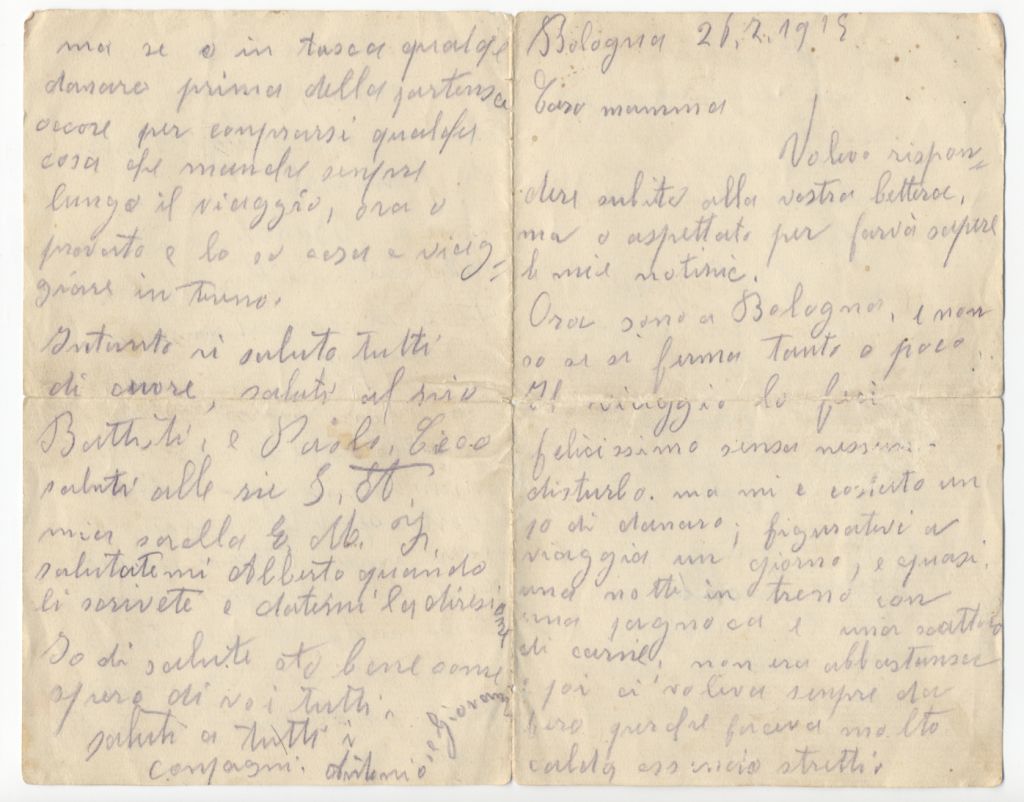 Bologna 26.7.1915
Caro mamma
Volevo rispon=
dere subito alla vostra lettera,
ma o aspettato per farvà sapere
le mie notisie.
Ora sono a Bologna, e non
so se si ferma tanto o poco.
Il viaggio lo feci
felicissimo sensa nessun
disturbo. ma mi e costuto un
po di danaro; figuratevi a
viaggia un giorno, e quasi
una notte in treno con
una pagnoca e una scattola
di carne, non era abbastansa
poi ci voleva senpre da
bere perche faceva molto
caldo essencio stretti.
ma se o in tasca qualche
danaro prima della partensa
ocore per conprarsi qualche
cosa che manche senpre
lungo il viaggio, ora o
provato e lo so cosa e viag=
giare in treno.
Intanto vi saluto tutti
di cuore, saluti al sio
Battisti, e Paolo, Ceco
saluti alle sie S, A,
mia sorella E, M. G,
salutatemi Alberto quando
li scrivete e datemi la diresione
Io di salute sto bene come
spero di voi tutti,
saluti a tutti i
conpagni. Antonio, e Giovanni